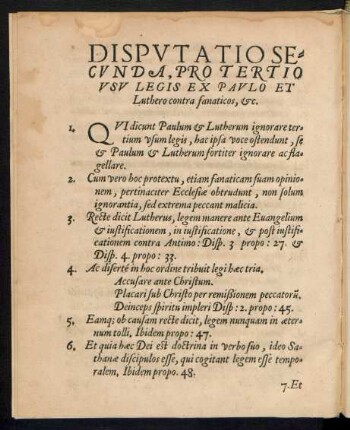 DISPVTATIO SE-
CVNDA, PRO TERTIO
VSV LEGIS EX PAVLO ET
Luthero contra fanaticos, &c.
1. QVI dicunt Paulum & Lutherum ignorare ter-
tium vsum legis, hac ipsa voce ostendunt, se
& Paulum & Lutherum fortiter ignorare ac fla-
gellare.
2. Cum vero hoc protextu, etiam fanaticam suam opinio-
nem, pertinaciter Ecclesiæ obtrudunt, non solum
ignorantia, sed extrema peccant malicia.
3. Recte dicit Lutherus, legem manere ante Euangelium
& iustificationem, in iustificatione, & post iustifi-
cationem contra Antino: Disp. 3 propo: 27. &
Disp. 4. propo: 33.
4. Ac disertè in hoc ordine tribuit legi hæc tria,
Accusare ante Christum.
Placari sub Christo per remißionem peccatorū.
Deinceps spiritu impleri Disp: 2. propo: 45.
5. Eamq; ob causam recte dicit, legem nunquam in æter-
num tolli, Ibidem propo: 47.
6. Et quia hæc Dei est doctrina in verbo suo, ideo Sa-
thanæ discipulos esse, qui cogitant legem esse tempo-
ralem, Ibidem propo. 48.
7. Et